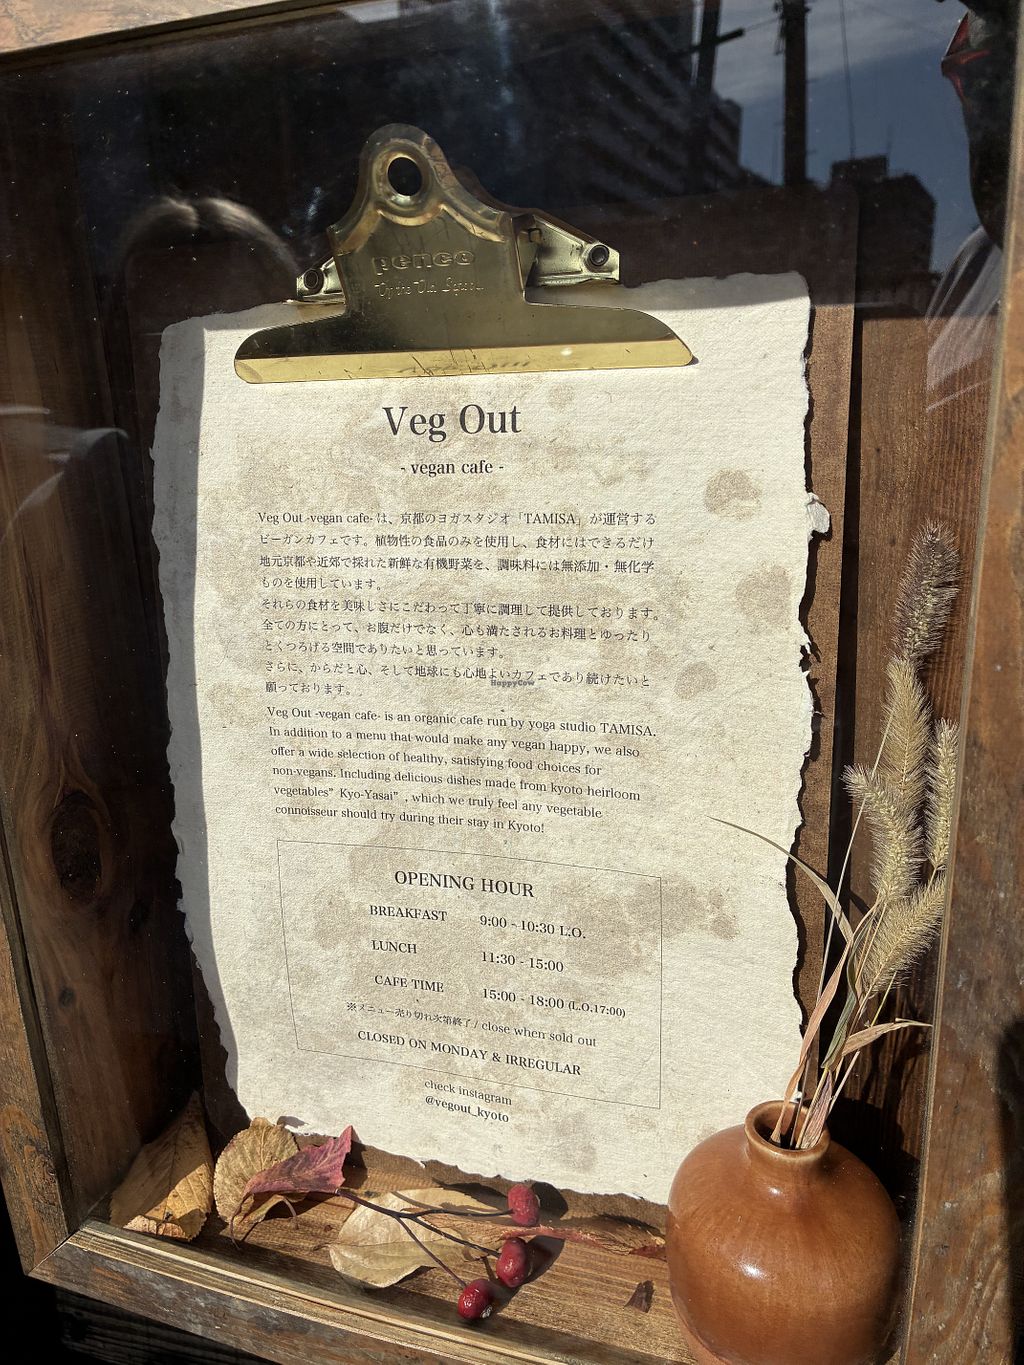 penco
Veg Out
- vegan cafe -
Veg Out -vegan cafe- は、京都のヨガスタジオ「TAMISA」が運営する
ビーガンカフェです。植物性の食品のみを使用し、食材にはできるだけ
地元京都や近郊で採れた新鮮な有機野菜を、調味料には無添加・無化学
ものを使用しています。
それらの食材を美味しさにこだわって丁寧に調理して提供しております。
全ての方にとって、お腹だけでなく、心も満たされるお料理とゆったり
とくつろげる空間でありたいと思っています。
さらに、からだと心、そして地球にも心地よいカフェであり続けたいと
願っております。
HappyCow
Veg Out -vegan cafe- is an organic cafe run by yoga studio TAMISA.
In addition to a menu that would make any vegan happy, we also
offer a wide selection of healthy, satisfying food choices for
non-vegans. Including delicious dishes made from kyoto heirloom
vegetables” Kyo-Yasai” , which we truly feel any vegetable
connoisseur should try during their stay in Kyoto!
OPENING HOUR
BREAKFAST 9:00 - 10:30 L.O.
LUNCH 11:30 - 15:00
CAFE TIME 15:00 - 18:00 (L.O.17:00)
※メニュー売り切れ次第終了 / close when sold out
CLOSED ON MONDAY & IRREGULAR
check instagram
@vegout_kyoto